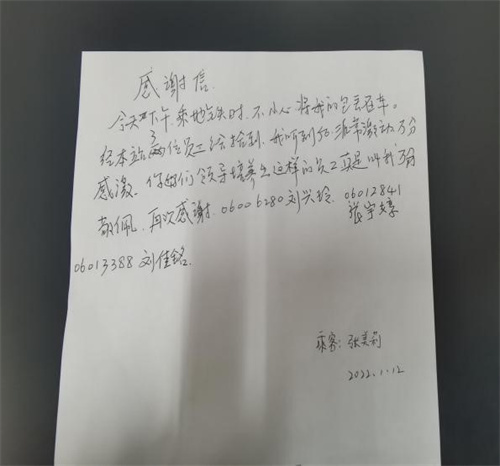 感谢信
今天下午乘地铁时，不小心将我的包丢在车。
经本站3位员工给捡到，我听到后非常激动万分
感激。你们领导培养出这样的员工真是叫我万分
敬佩，再次感谢。06006280刘兴玲，06012841
张宇婷
06013388刘佳铭。
乘客：张美莉
2022.1.12